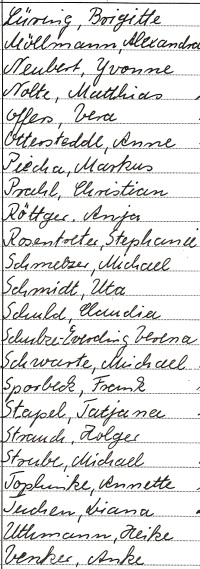 Lüring, Brigitte
Möllmann, Alexandra
Neubert, Yvonne
Nolte, Matthias
Offers, Vera
Ottersteddt, Anne
Piecha, Markus
Prahl, Christian
Röttger, Anja
Rosentreter, Stephanie
Schmelzer, Michael
Schmidt, Uta
Schuld, Claudia
Schulze-Everding Verena
Schwarte, Michael
Sporbeck, Frank
Stapel, Tatjana
Strauch, Holger
Strube, Michael
Tophinke, Annette
Tuchen, Diana
Uthmann, Heike
Venker, Anke